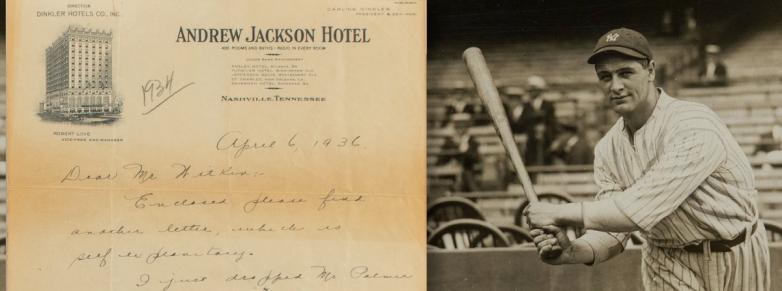 DIRECTOR
DINKLER HOTELS CO., INC.
CARLING DINKLER
PRESIDENT & GEN. MGR.
ANDREW JACKSON HOTEL
400 ROOMS AND BATHS - RADIO IN EVERY ROOM
UNDER SAME MANAGEMENT
NASHVILLE, TENNESSEE
1934
ROBERT LOVE
VICE-PRES. AND MANAGER
April 6, 1936.
Dear Mr Witkin:-
Enclosed please find
another letter, which is
self explanatory.
I just dropped Mr Palmer
NY